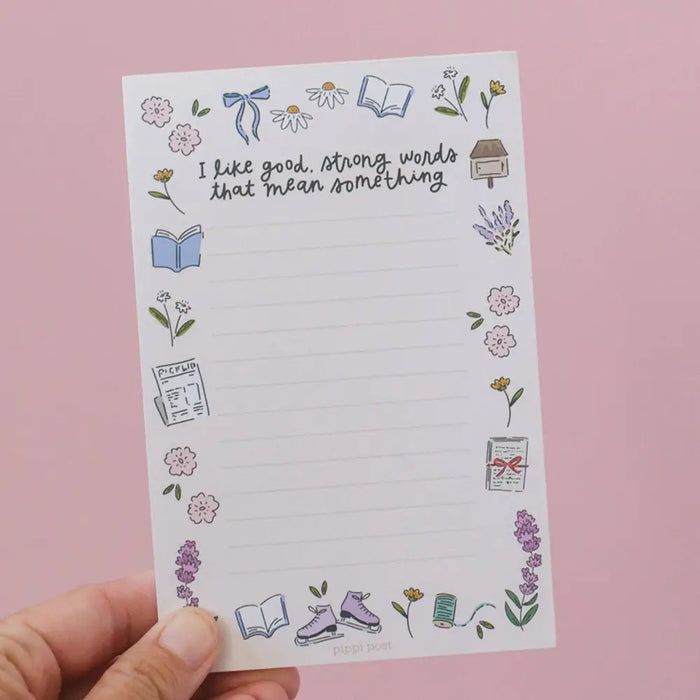 I like good, strong words
that mean something
PICKWICK
pippi post